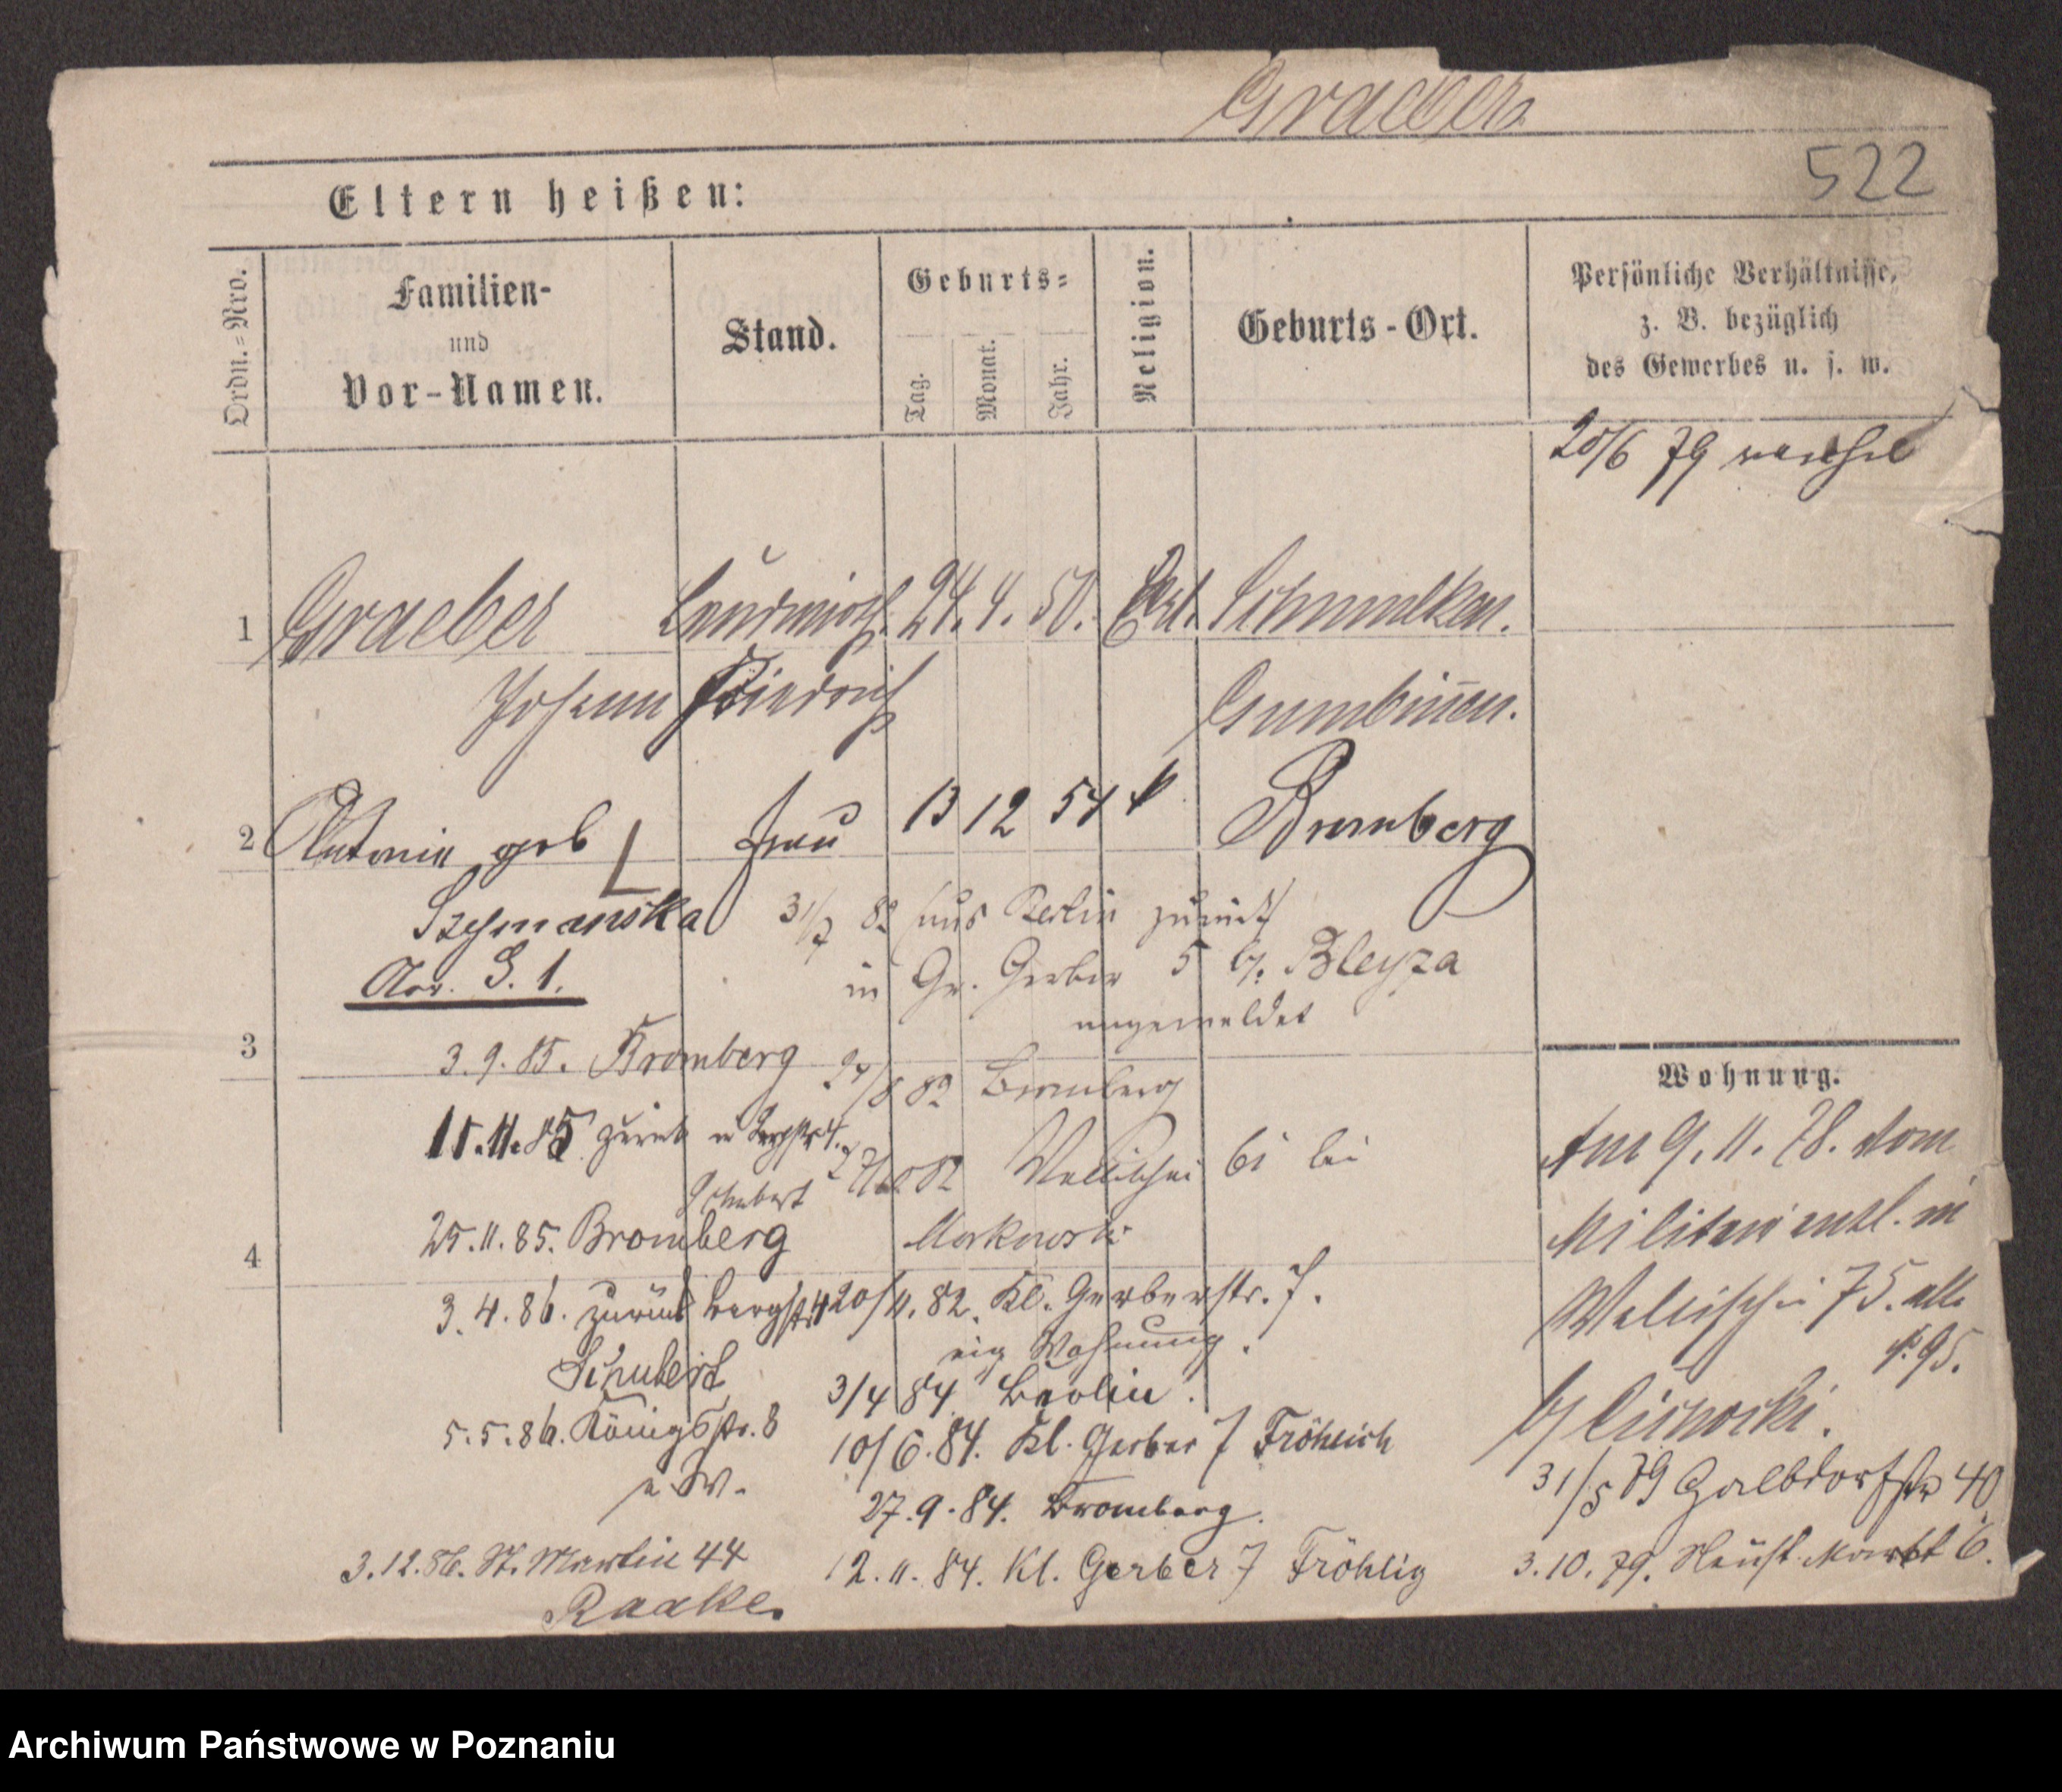 Graeber
522
Eltern heißen:
Ordn.=Nro.
Familien-
und
Vor-Namen.
Stand.
Geburts=
Tag.
Monat.
Jahr.
Religion.
Geburts-Ort.
Persönliche Verhältnisse,
z. B. bezüglich
des Gewerbes u. s. w.
20/6 79
1 Graeber 24. 4. 50. Schmulken.
Johann Friedrich Gumbinnen.
2 Antonie geb Frau 13 12 54 k Bromberg
Szymanska 31/7 82 aus Berlin zurück
S. 1. in Gr. Gerber 5 b. Bleyza
angemeldet
3
3.9.85. Bromberg 82 Bromberg
Wohnung.
15.11.85 zurück Bergstr 4. 82 Wallischei bei
Schubert
Am 9.11.78. vom
25.11.85. Bromberg
Militair entl. in
4
3.4.86. zurück Bergstr 4 20/11.82. Kl. Gerberstr. 7.
Wallischei 75. alte
Schubert eig Wohnung.
№ 95.
3/4 84 Berlin.
5.5.86. Königsstr. 8 10/6.84. Kl. Gerber 7 Fröhlich
e. W.
31/5 79 Halbdorfstr 40
27.9.84. Bromberg.
3.12.86. St. Martin 44 12.11.84. Kl. Gerber 7 Fröhlig 3.10.79. Neust. Markt 6.
Raake.
Archiwum Państwowe w Poznaniu